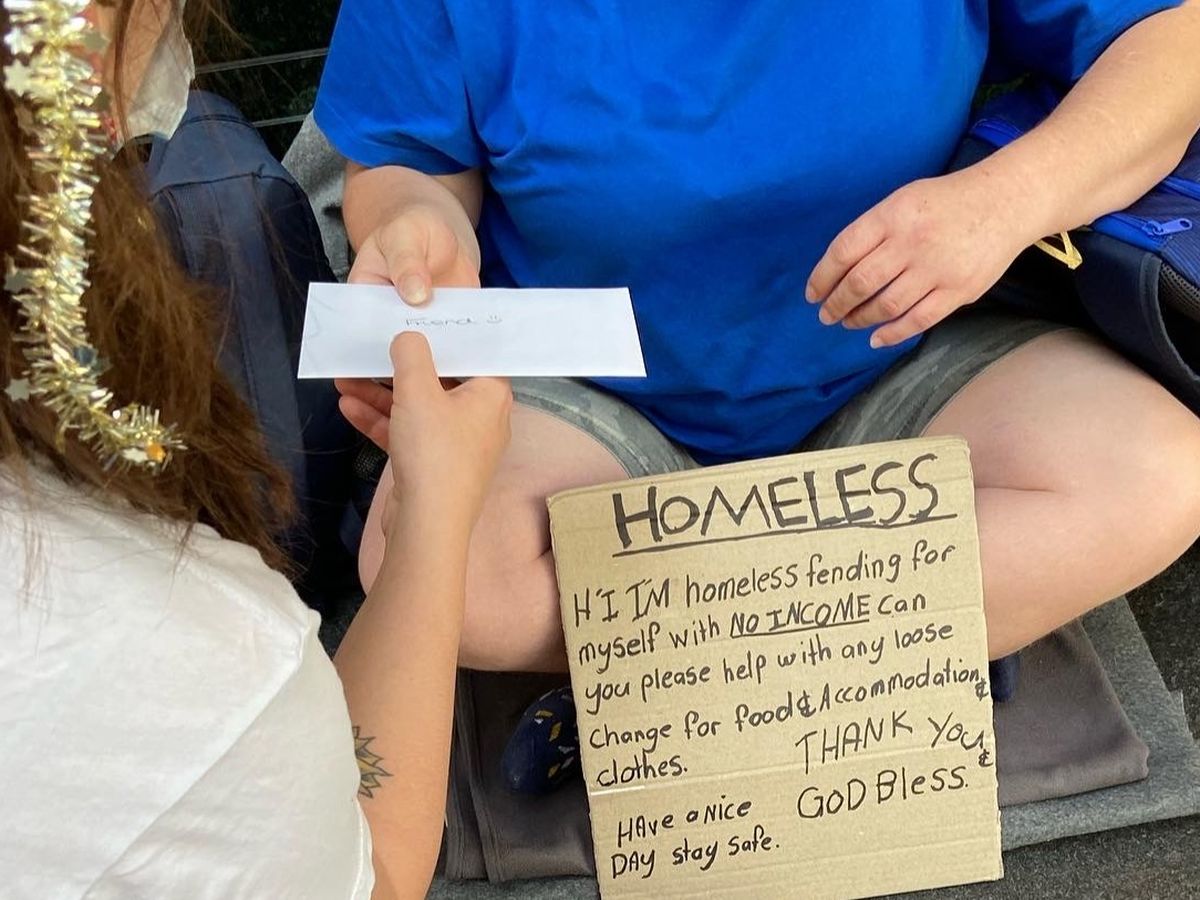 Friend :)
HOMELESS
H'I I'M homeless fending for
myself with NO INCOME can
you please help with any loose
change for food & Accommodation, &
clothes.
THANK YOU &
GOD Bless.
HAve a Nice
DAY stay safe.